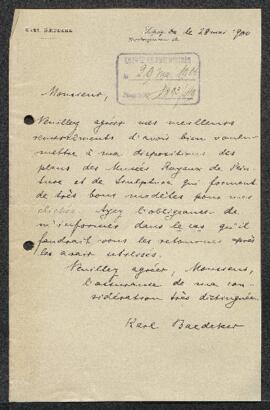 KARL BÆDEKER
Leipzig le 28 mai 1900
Monsieur,
Veuillez agréer mes meilleurs
remerciements d'avoir bien voulu
mettre à ma disposition des
plans des Musées Royaux de Pein-
ture et de Sculpture qui forment
de très bons modèles pour mes
clichés. Ayez l'obligeance de
m'informer dans le cas qu'il
faudrait vous les retourner après
les avoir utilisés.
Veuillez agréer, Monsieur,
l'assurance de ma con-
sidération très distinguée.
Karl Baedeker